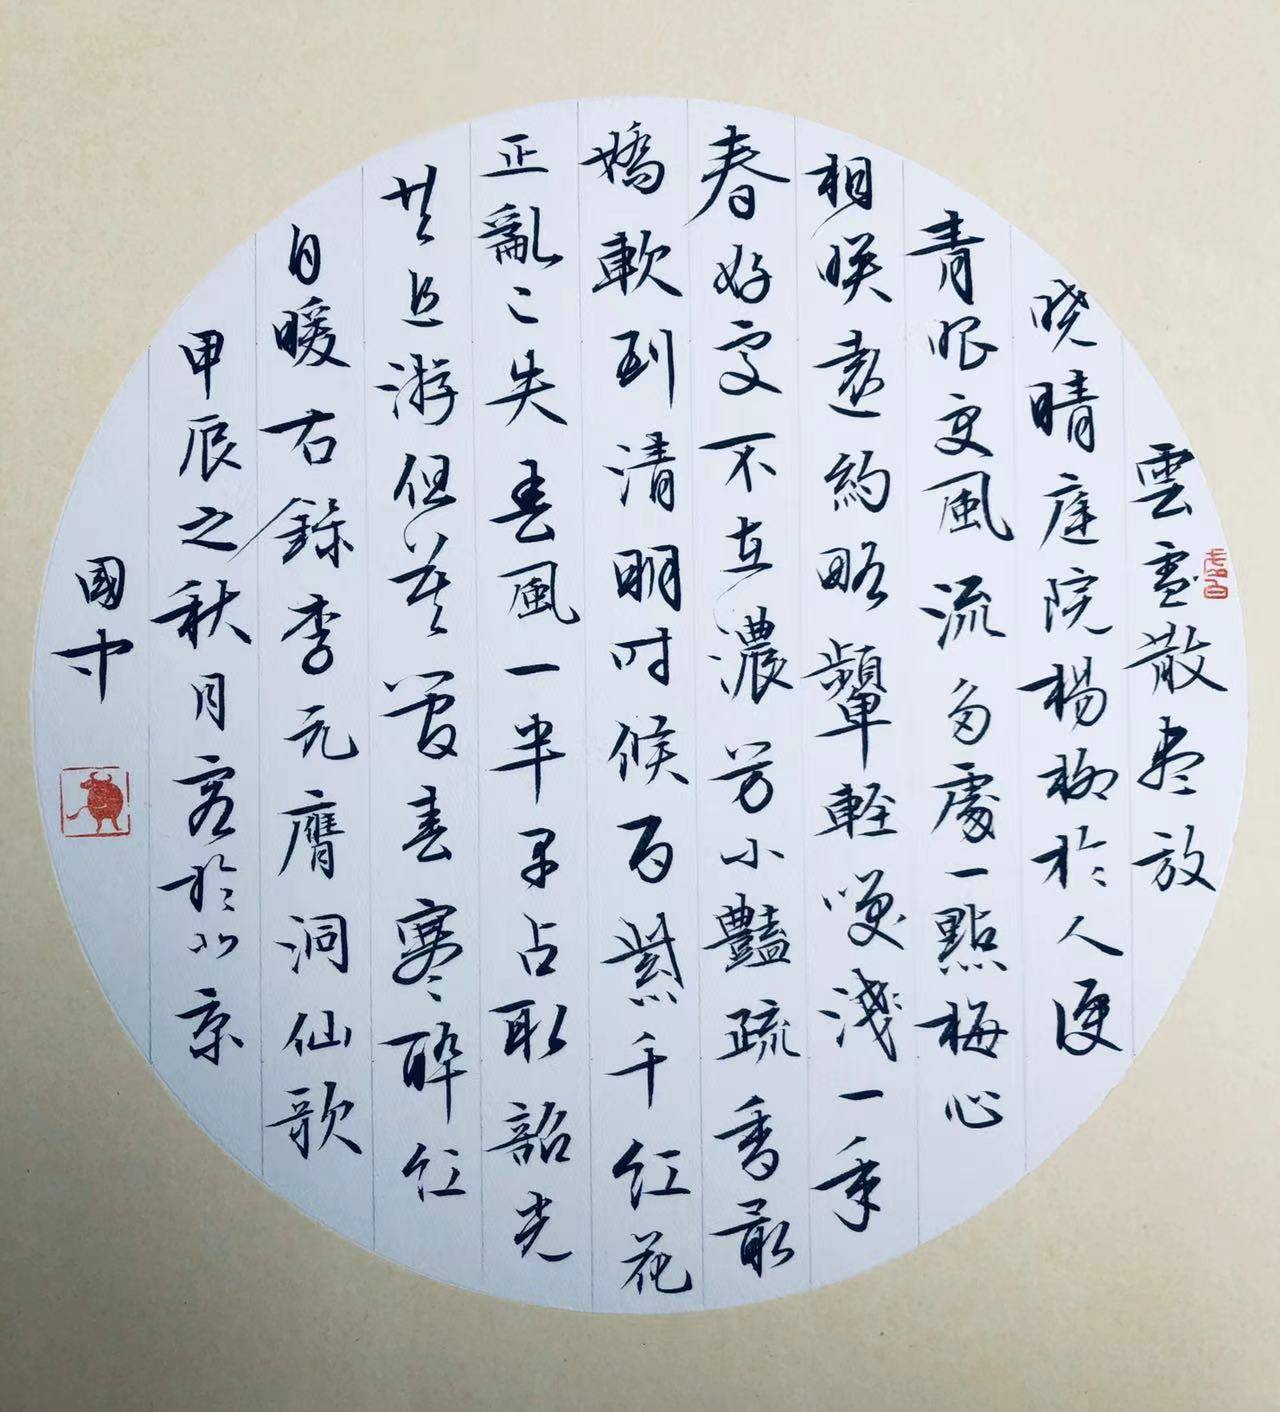 雲散盡放
曉晴庭院楊柳於人便
青眼更風流多處一點梅心
相映遠約略顰輕咲淺一年
春好處不在濃芳小豔疏香最
嬌軟到清明時候百紫千紅花
正亂已失春風一半早占取韶光
共追游但莫管春寒醉紅
自暖右錄李元膺洞仙歌
甲辰之秋月客於北京
國